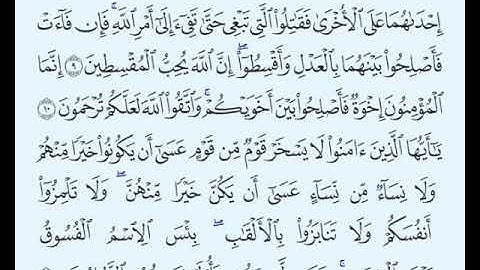 إِحْدَىٰهُمَا عَلَى ٱلْأُخْرَىٰ فَقَٰتِلُوا۟ ٱلَّتِى تَبْغِى حَتَّىٰ تَفِىٓءَ إِلَىٰٓ أَمْرِ ٱللَّهِ ۚ فَإِن فَآءَتْ
فَأَصْلِحُوا۟ بَيْنَهُمَا بِٱلْعَدْلِ وَأَقْسِطُوٓا۟ ۖ إِنَّ ٱللَّهَ يُحِبُّ ٱلْمُقْسِطِينَ ٩ إِنَّمَا
ٱلْمُؤْمِنُونَ إِخْوَةٌ فَأَصْلِحُوا۟ بَيْنَ أَخَوَيْكُمْ ۚ وَٱتَّقُوا۟ ٱللَّهَ لَعَلَّكُمْ تُرْحَمُونَ ١٠
يَٰٓأَيُّهَا ٱلَّذِينَ ءَامَنُوا۟ لَا يَسْخَرْ قَوْمٌ مِّن قَوْمٍ عَسَىٰٓ أَن يَكُونُوا۟ خَيْرًا مِّنْهُمْ
وَلَا نِسَآءٌ مِّن نِّسَآءٍ عَسَىٰٓ أَن يَكُنَّ خَيْرًا مِّنْهُنَّ ۖ وَلَا تَلْمِزُوٓا۟
أَنفُسَكُمْ وَلَا تَنَابَزُوا۟ بِٱلْأَلْقَٰبِ ۖ بِئْسَ ٱلِٱسْمُ ٱلْفُسُوقُ